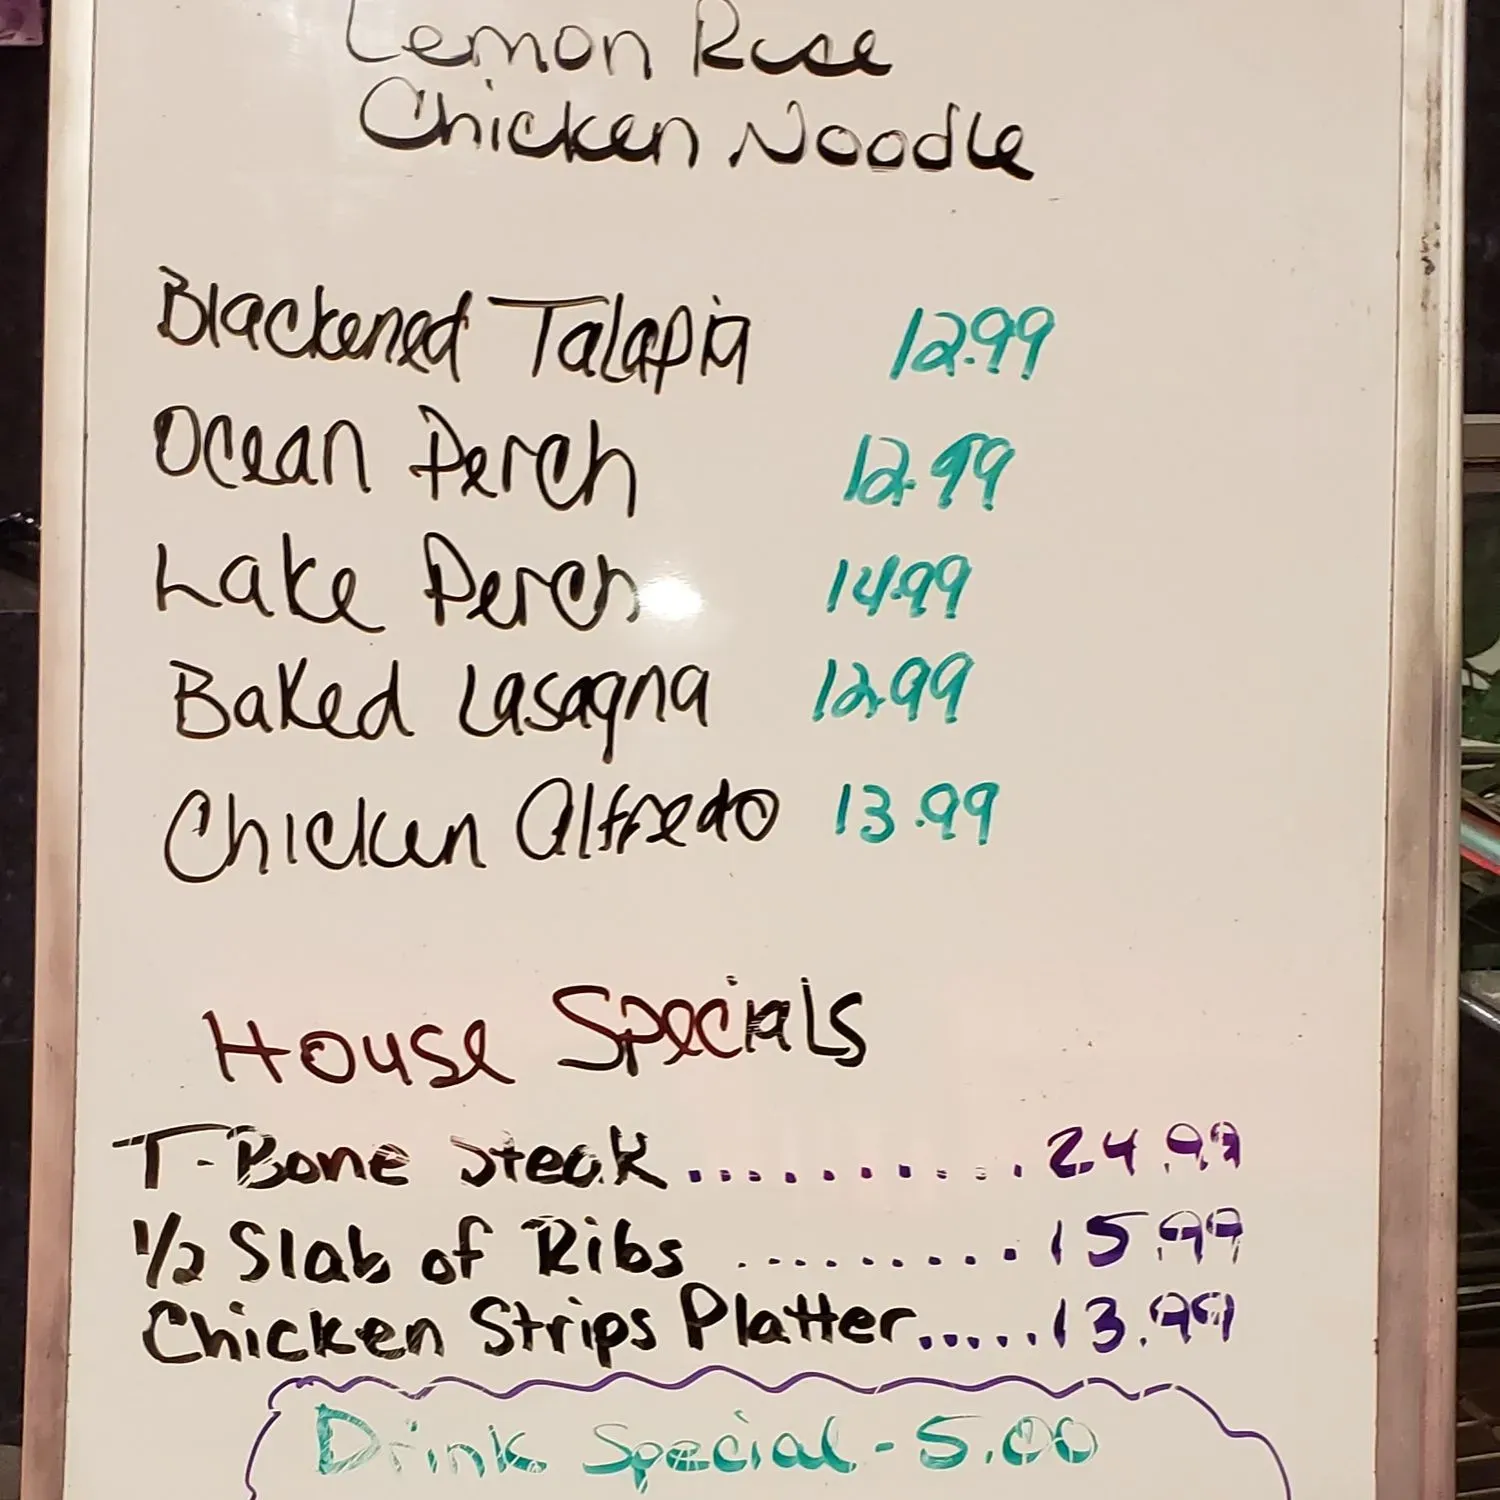 Lemon Rice
Chicken Noodle
Blackened Talapia 12.99
Ocean Perch 12.99
Lake Perch 14.99
Baked Lasagna 12.99
Chicken Alfredo 13.99
House Specials
T-Bone Steak ............. 24.99
1/2 Slab of Ribs .......... 15.99
Chicken Strips Platter ..... 13.99
Drink Special - 5.00